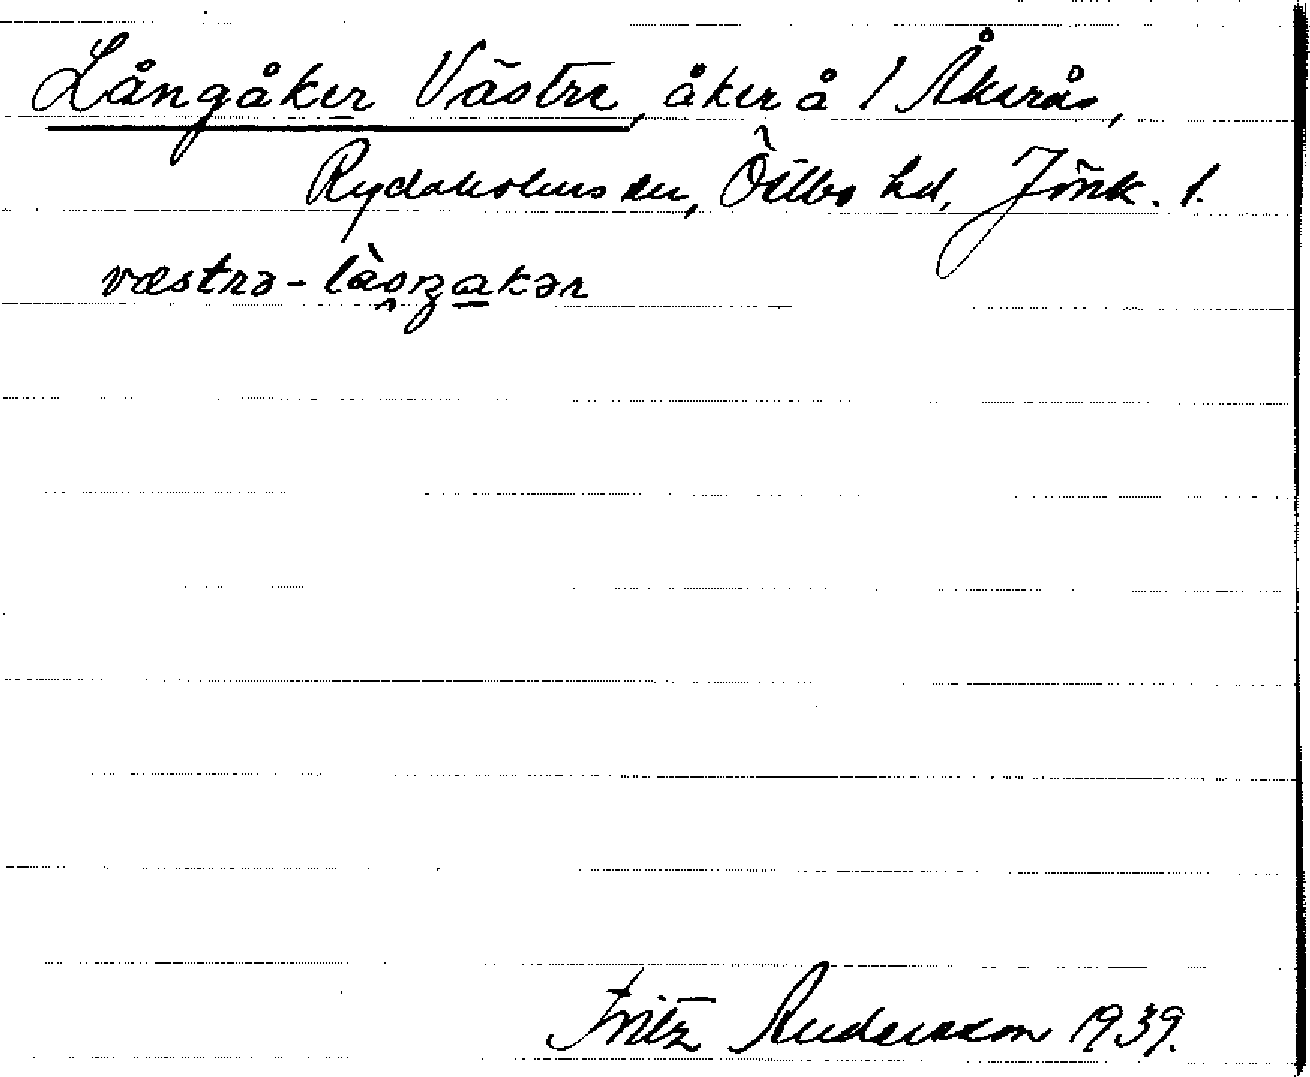 Långåker Västre, åker å 1 Åkerås,
Rydaholms sn, Östbo hd, Jönk. l.
væstrə - låŋakər
Fritz Andersson 1939.